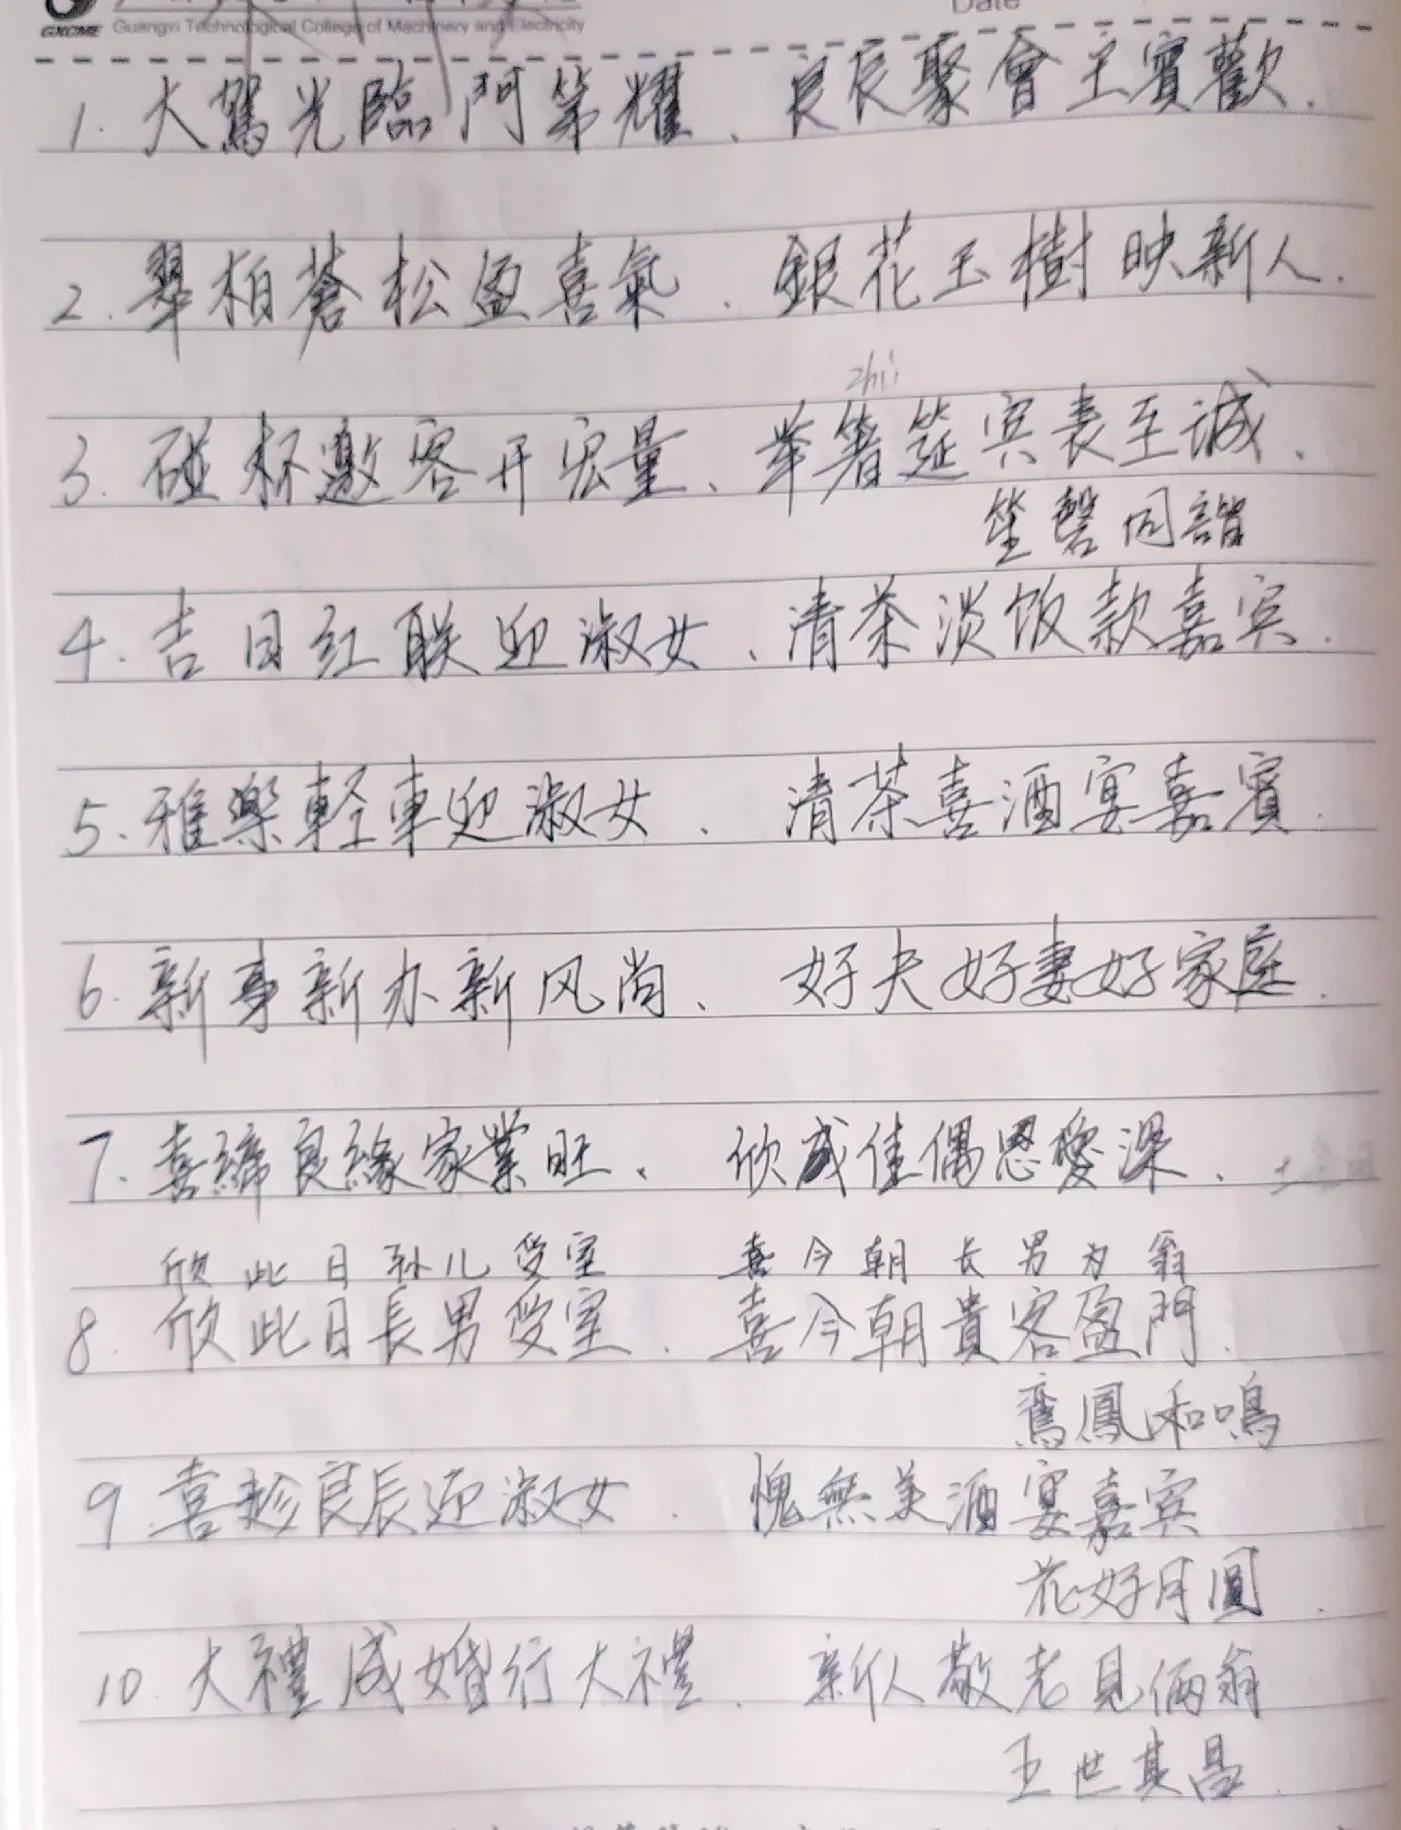 GXCME Guangxi Technological College of Machinery and Electricity
Date
1. 大駕光臨門第耀、良辰聚會主賓歡.
2. 翠柏蒼松盈喜氣、銀花玉樹映新人.
zhù
3. 碰杯邀客开宏量、举箸筵宾表至诚.
笙磬同諧
4. 吉日红联迎淑女、清茶淡饭款嘉宾.
5. 雅樂軽車迎淑女、清茶喜酒宴嘉賓.
6. 新事新办新风尚、好夫好妻好家庭.
7. 喜締良緣家業旺、欣成佳偶恩愛深.
欣此日孙儿受室 喜今朝长男为翁
8. 欣此日長男受室、喜今朝貴客盈門.
鸞鳳和鳴
9. 喜趁良辰迎淑女、愧無美酒宴嘉宾
花好月圓.
10. 大禮成婚行大禮、新人敬老見俩翁
五世其昌.